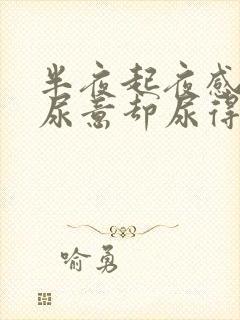 半夜起夜感
尿意却尿得
喻勇